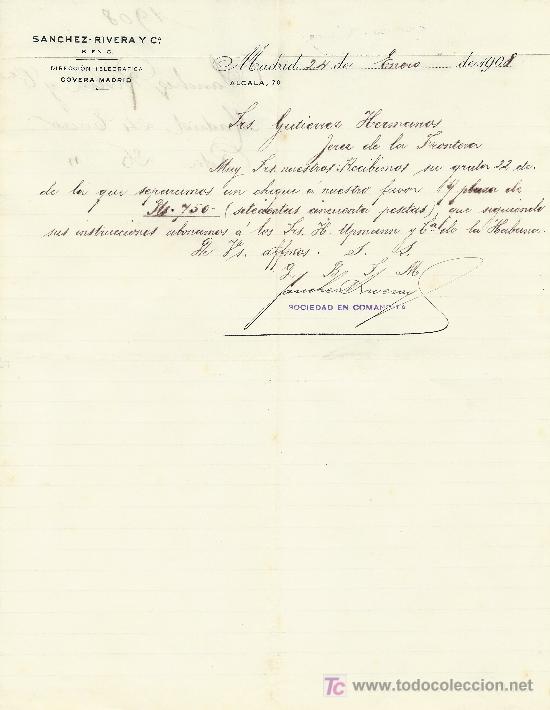 SANCHEZ-RIVERA Y Cª
S. EN C.
DIRECCIÓN TELEGRÁFICA
COVERA-MADRID
Madrid 24 de Enero de 1908
ALCALÁ, 70
Srs. Gutierrez Hermanos
Jerez de la Frontera
Muy Srs. nuestros: Recibimos su grata 22 de.
de la que separamos un cheque a nuestro favor s/ plaza de
Pts. 750 - (setecientas cincuenta pesetas), que siguiendo
sus instrucciones abonamos á los Srs. H. Upmann y Cª de la Habana.
De Vs. affmos. S. S.
Q. B. S. M.
Sanchez Rivera
SOCIEDAD EN COMANDITA
TC www.todocoleccion.net